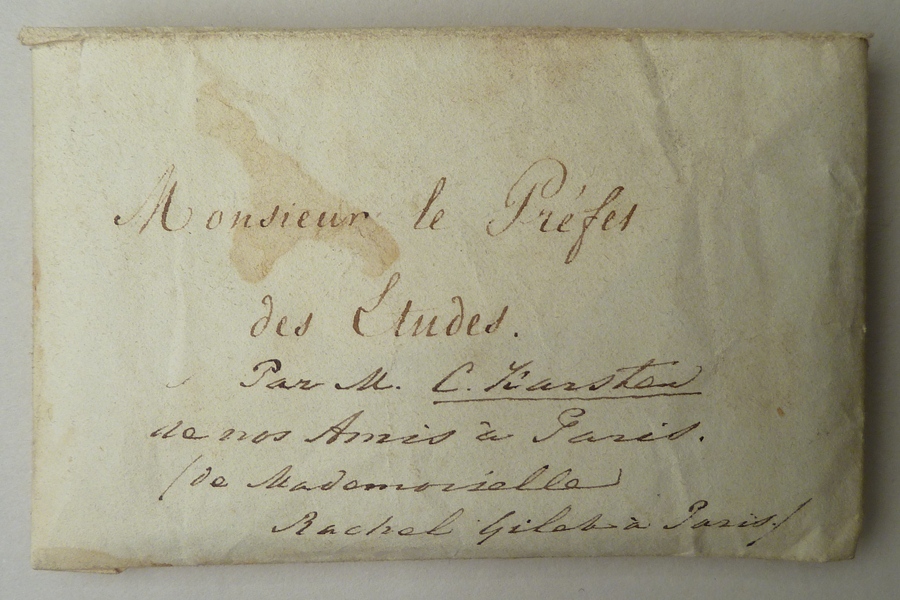 Monsieur le Préfet
des Etudes.
Par M. C. Karsten
de nos Amis à Paris.
(de Mademoiselle
Rachel à Paris)